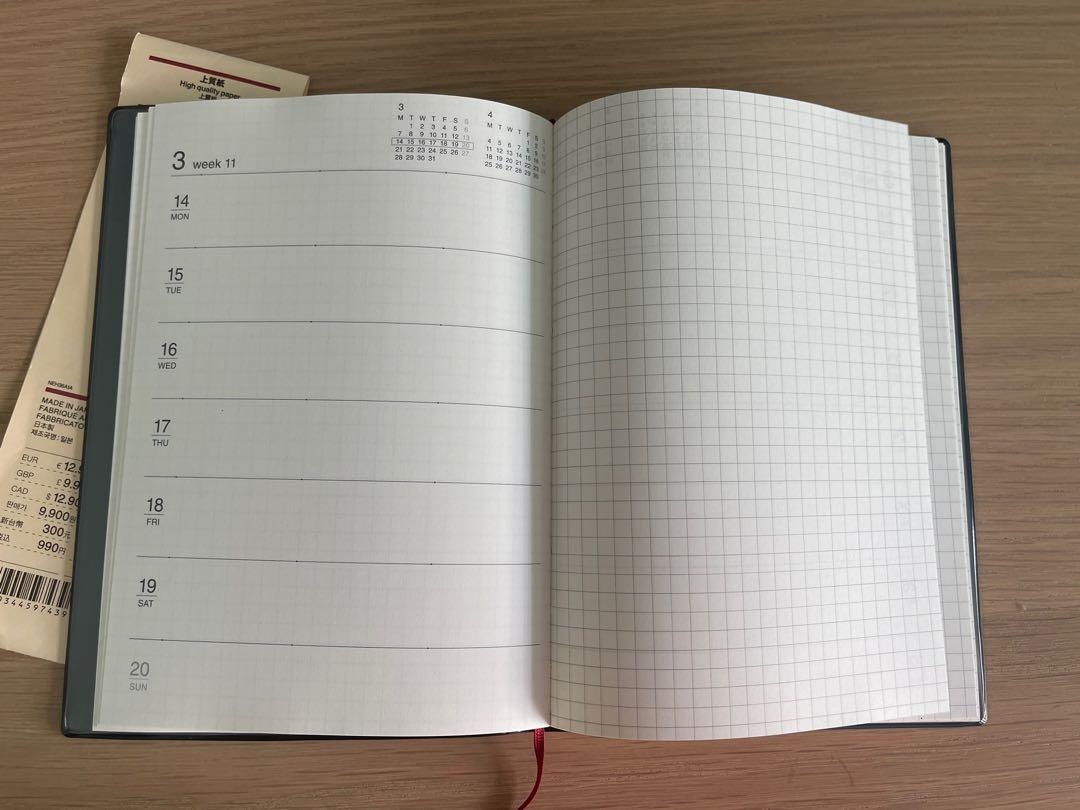 上質紙
High quality paper
上質
3
M T W T F S S
1 2 3 4 5 6
7 8 9 10 11 12 13
14 15 16 17 18 19 20
21 22 23 24 25 26 27
28 29 30 31
4
M T W T F S
1 2
4 5 6 7 8 9
11 12 13 14 15 16
18 19 20 21 22 23
25 26 27 28 29 30
3 week 11
14
MON
15
TUE
16
WED
17
THU
18
FRI
19
SAT
20
SUN
NEH36A1A
MADE IN
FABRIQUÉ
日本製
제조국명 : 일본
EUR € 12.
GBP £ 9.9
CAD $ 12.90
판매가 9,900원
新台幣 300元
税込 990円